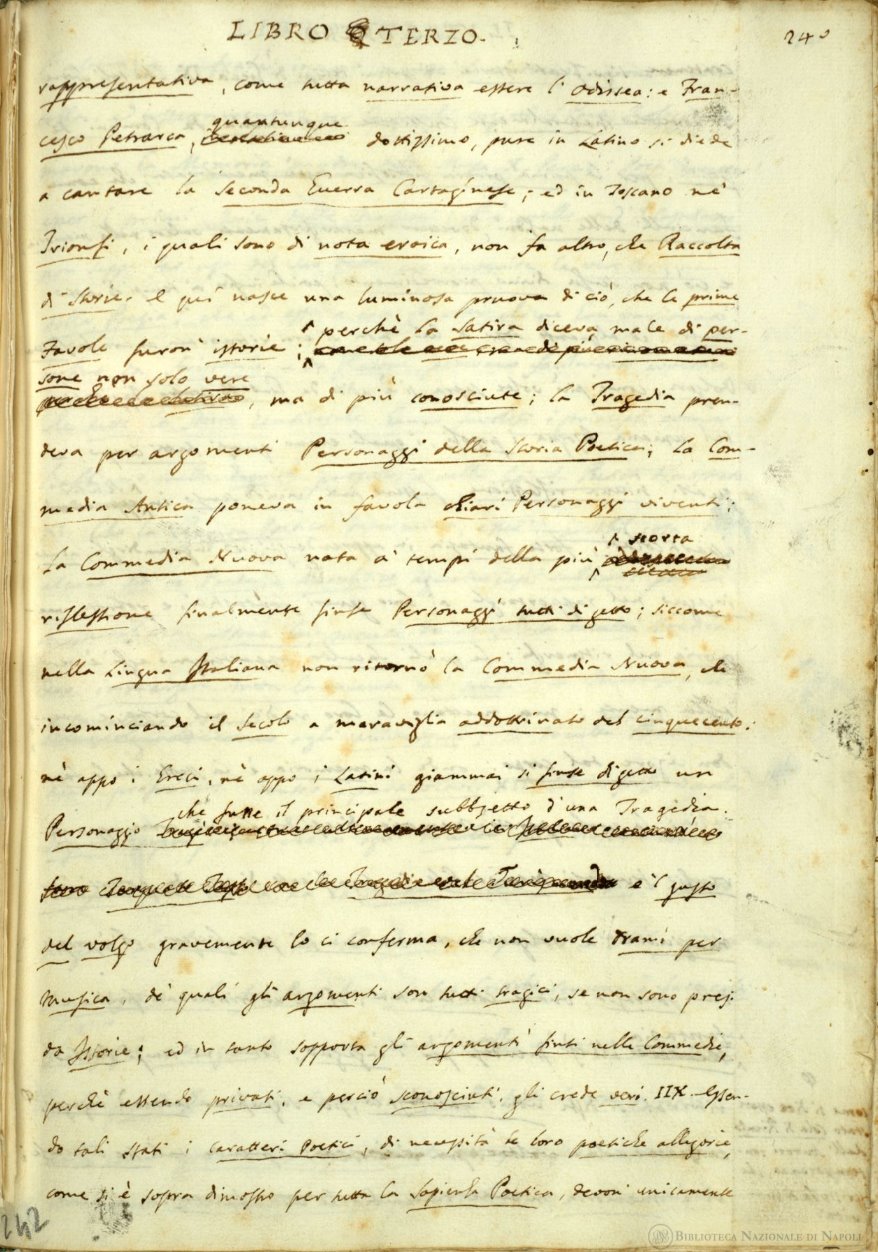 LIBRO TERZO.
240
rappresentativa, come tutta narrativa essere l'Odissea: e Fran-
cesco Petrarca, quantunque dottissimo, pure in Latino si diede
a cantare la seconda Guerra Cartaginese; ed in Toscano ne'
Trionfi, i quali sono di nota eroica, non fa altro, che Raccolta
di Storie. E quì nasce una luminosa pruova di ciò, che le prime
Favole furon' istorie; perchè la Satira diceva male di per-
sone non solo vere
, ma di più conosciute; la Tragedia pren-
deva per argomenti Personaggi della Storia Poetica; la Com-
media Antica poneva in favola chiari Personaggi viventi;
la Commedia Nuova nata a' tempi della più scorta
riflessione finalmente finse Personaggi tutti di getto; siccome
nella Lingua Italiana non ritornò la Commedia Nuova, che
incominciando il Secolo a maraviglia addottrinato del cinquecento:
nè appo i Greci, nè appo i Latini giammai si finse di getto un
Personaggio che fusse il principale subbjetto d'una Tragedia.
e 'l gusto
del volgo gravemente lo ci conferma, che non vuole drami per
musica, de' quali gli argomenti son tutti tragici, se non sono presi
da Istorie; ed in tanto sopporta gli argomenti finti nelle Commedie,
perchè essendo privati, e perciò sconosciuti, gli crede veri. IIX. Essen-
do tali stati i caratteri Poetici, di necessità le loro poetiche allegorie,
come si è sopra dimostro per tutta la Sapienza Poetica, devon' unicamente
242
BIBLIOTECA NAZIONALE DI NAPOLI